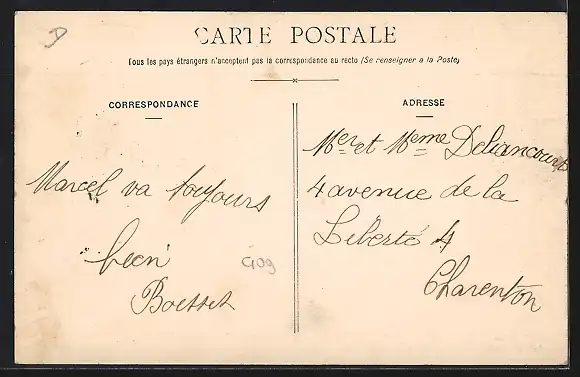 CARTE POSTALE
Tous les pays étrangers n'acceptent pas la correspondance au recto (Se renseigner a la Poste)
CORRESPONDANCE
Marcel va toujours
bien
ADRESSE
Mer et Meme Deliancourt
4 avenue de la
Liberté 4
Charenton